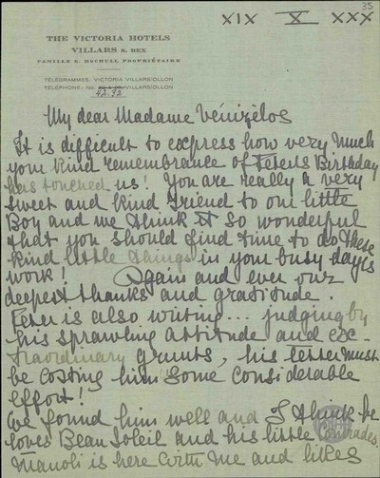 35
XIX X XXX
THE VICTORIA HOTELS
VILLARS S. BEX
FAMILLE S. HOCHULI PROPRIÉTAIRE
TÉLÉGRAMMES: VICTORIA VILLARS/OLLON
TÉLÉPHONE: No. VILLARS/OLLON
My dear Madame Vénizélos
It is difficult to express how very much
your kind remembrance of Peter's Birthday
has touched us! You are really a very
sweet and kind friend to our little
Boy and we think it so wonderful
that you should find time to do these
kind little things in your busy day's
work! Again and ever our
deepest thanks and gratitude.
Peter is also writing... judging by
his sprawling attitude and ex-
traordinary grunts, his letter must
be costing him some considerable
effort!
We found him well and I think he
loves Beau Soleil and his little comrades.
Manoli is here with me and likes